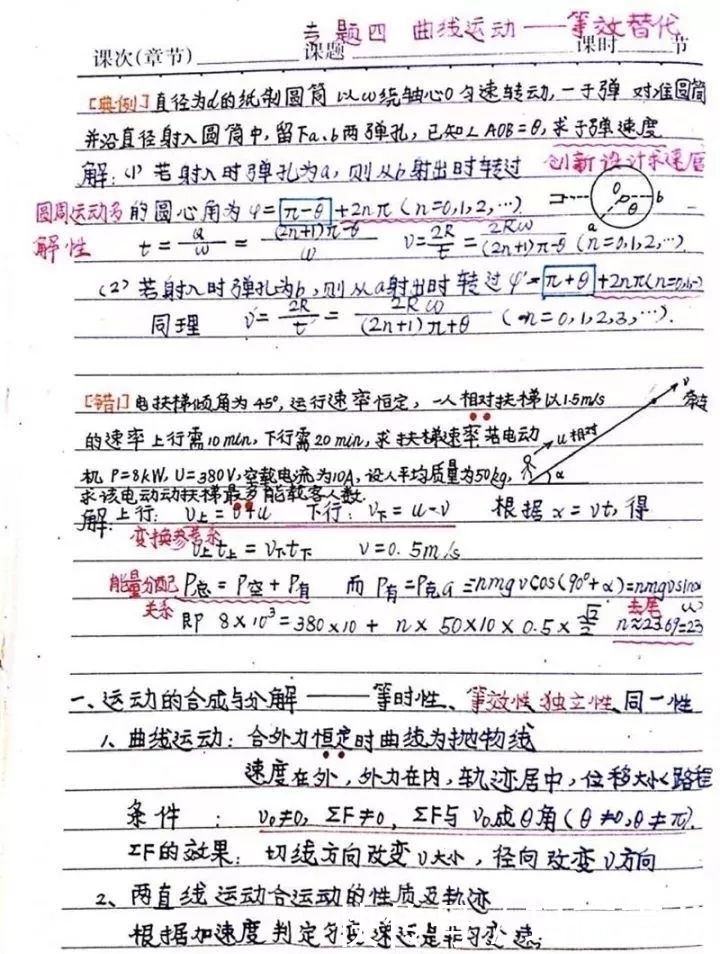 专题四 曲线运动——等效替代
课次(章节)________课题________课时____节
[典例]直径为d的纸制圆筒以ω绕轴心O匀速转动,一子弹对准圆筒
并沿直径射入圆筒中,留下a、b两弹孔,已知∠AOB=θ,求子弹速度
创新设计求速度
解:(1)若射入时弹孔为a,则从b射出时转过
圆周运动多解性
的圆心角为φ=π-θ+2nπ(n=0,1,2,…)
t=α/ω=(2n+1)π-θ/ω v=2R/t=2Rω/(2n+1)π-θ (n=0,1,2,…).
O θ a b
(2)若射入时弹孔为b,则从a射出时转过φ'=π+θ+2nπ(n=0,1,…)
同理 v'=2R/t'=2Rω/(2n+1)π+θ (n=0,1,2,3,…).
[错1]电扶梯倾角为45°,运行速率恒定,一人相对扶梯以1.5m/s
的速率上行需10min,下行需20min,求扶梯速率.若电动
机P=8kW,U=380V,空载电流为10A,设人平均质量为50kg,
求该电动动扶梯最多能载客人数.
v
u相对
α
解:上行:v上=v+u 下行:v下=u-v 根据x=vt,得
变换参考系
v上t上=v下t下 v=0.5m/s
能量分配关系
P总=P空+P有 而P有=P克G=nmgvcos(90°+α)=nmgvsinα
去尾
即 8×10³=380×10+n×50×10×0.5×√2/2 n≈23.69=23
一、运动的合成与分解——等时性、等效性、独立性、同一性
1、曲线运动:合外力恒定时曲线为抛物线
速度在外,外力在内,轨迹居中,位移大小<路程
条件:v₀≠0,ΣF≠0,ΣF与v₀成θ角(θ≠0,θ≠π).
ΣF的效果:切线方向改变v大小,径向改变v方向
2、两直线运动合运动的性质及轨迹
根据加速度判定匀变速还是非匀变速